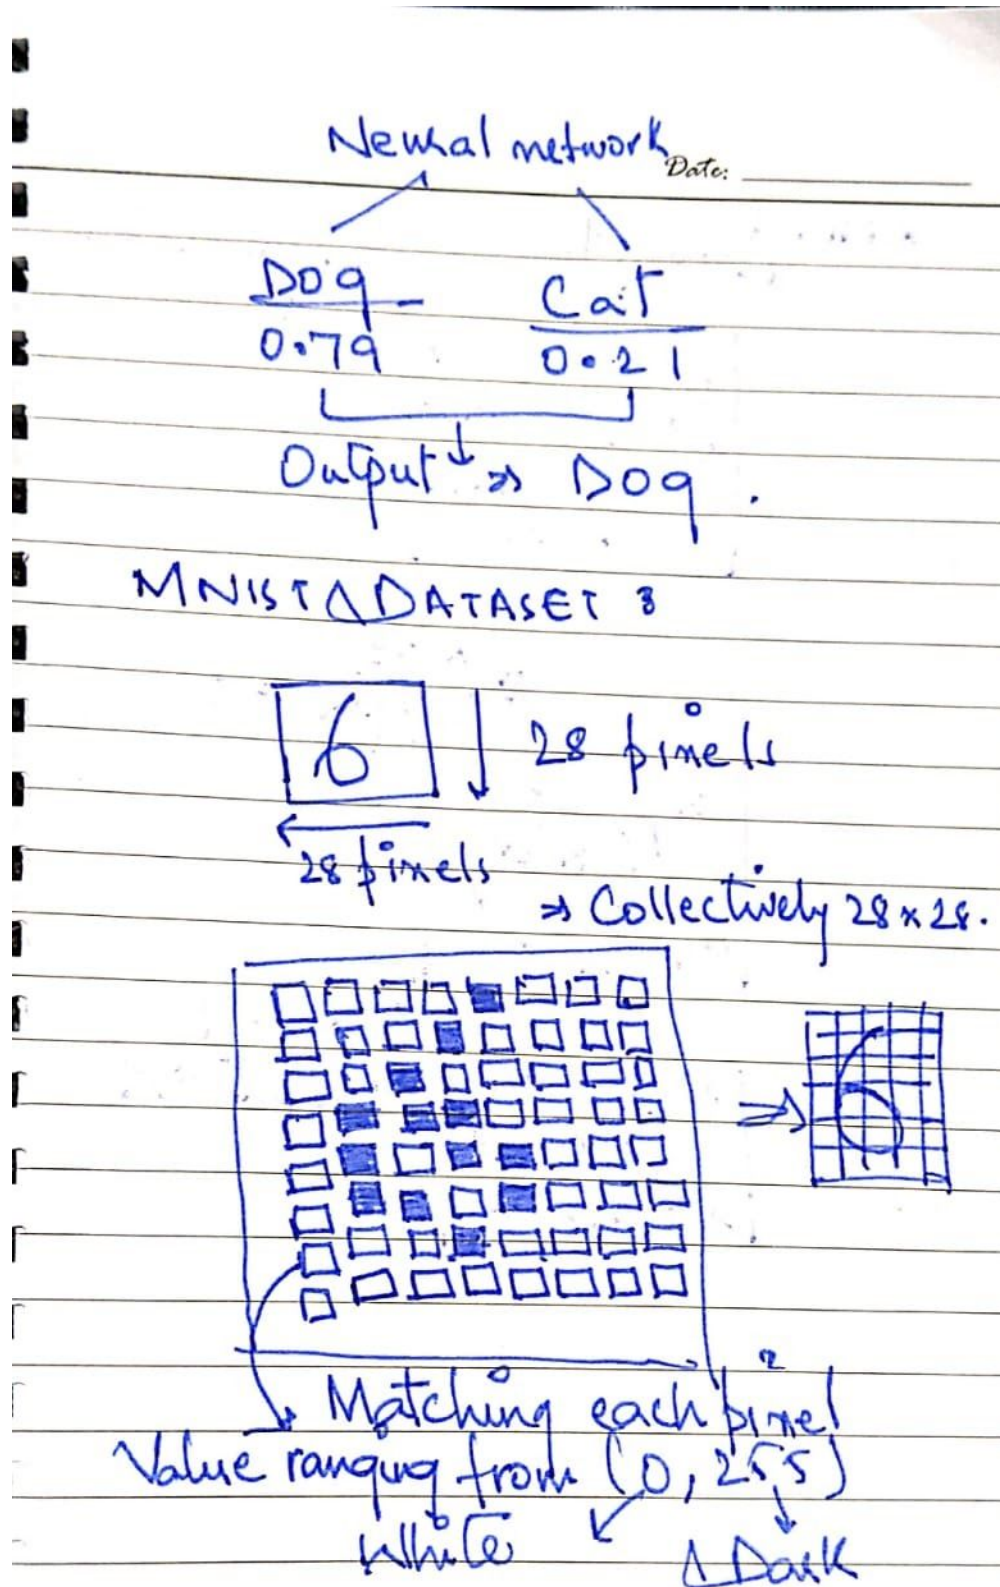 Neural network
Date:
Dog Cat
0.79 0.21
Output ⇒ Dog.
MNIST DATASET :
6 28 pixels
28 pixels
⇒ Collectively 28 x 28.
⇒ 6
Matching each pixel
Value ranging from (0, 255)
White Dark